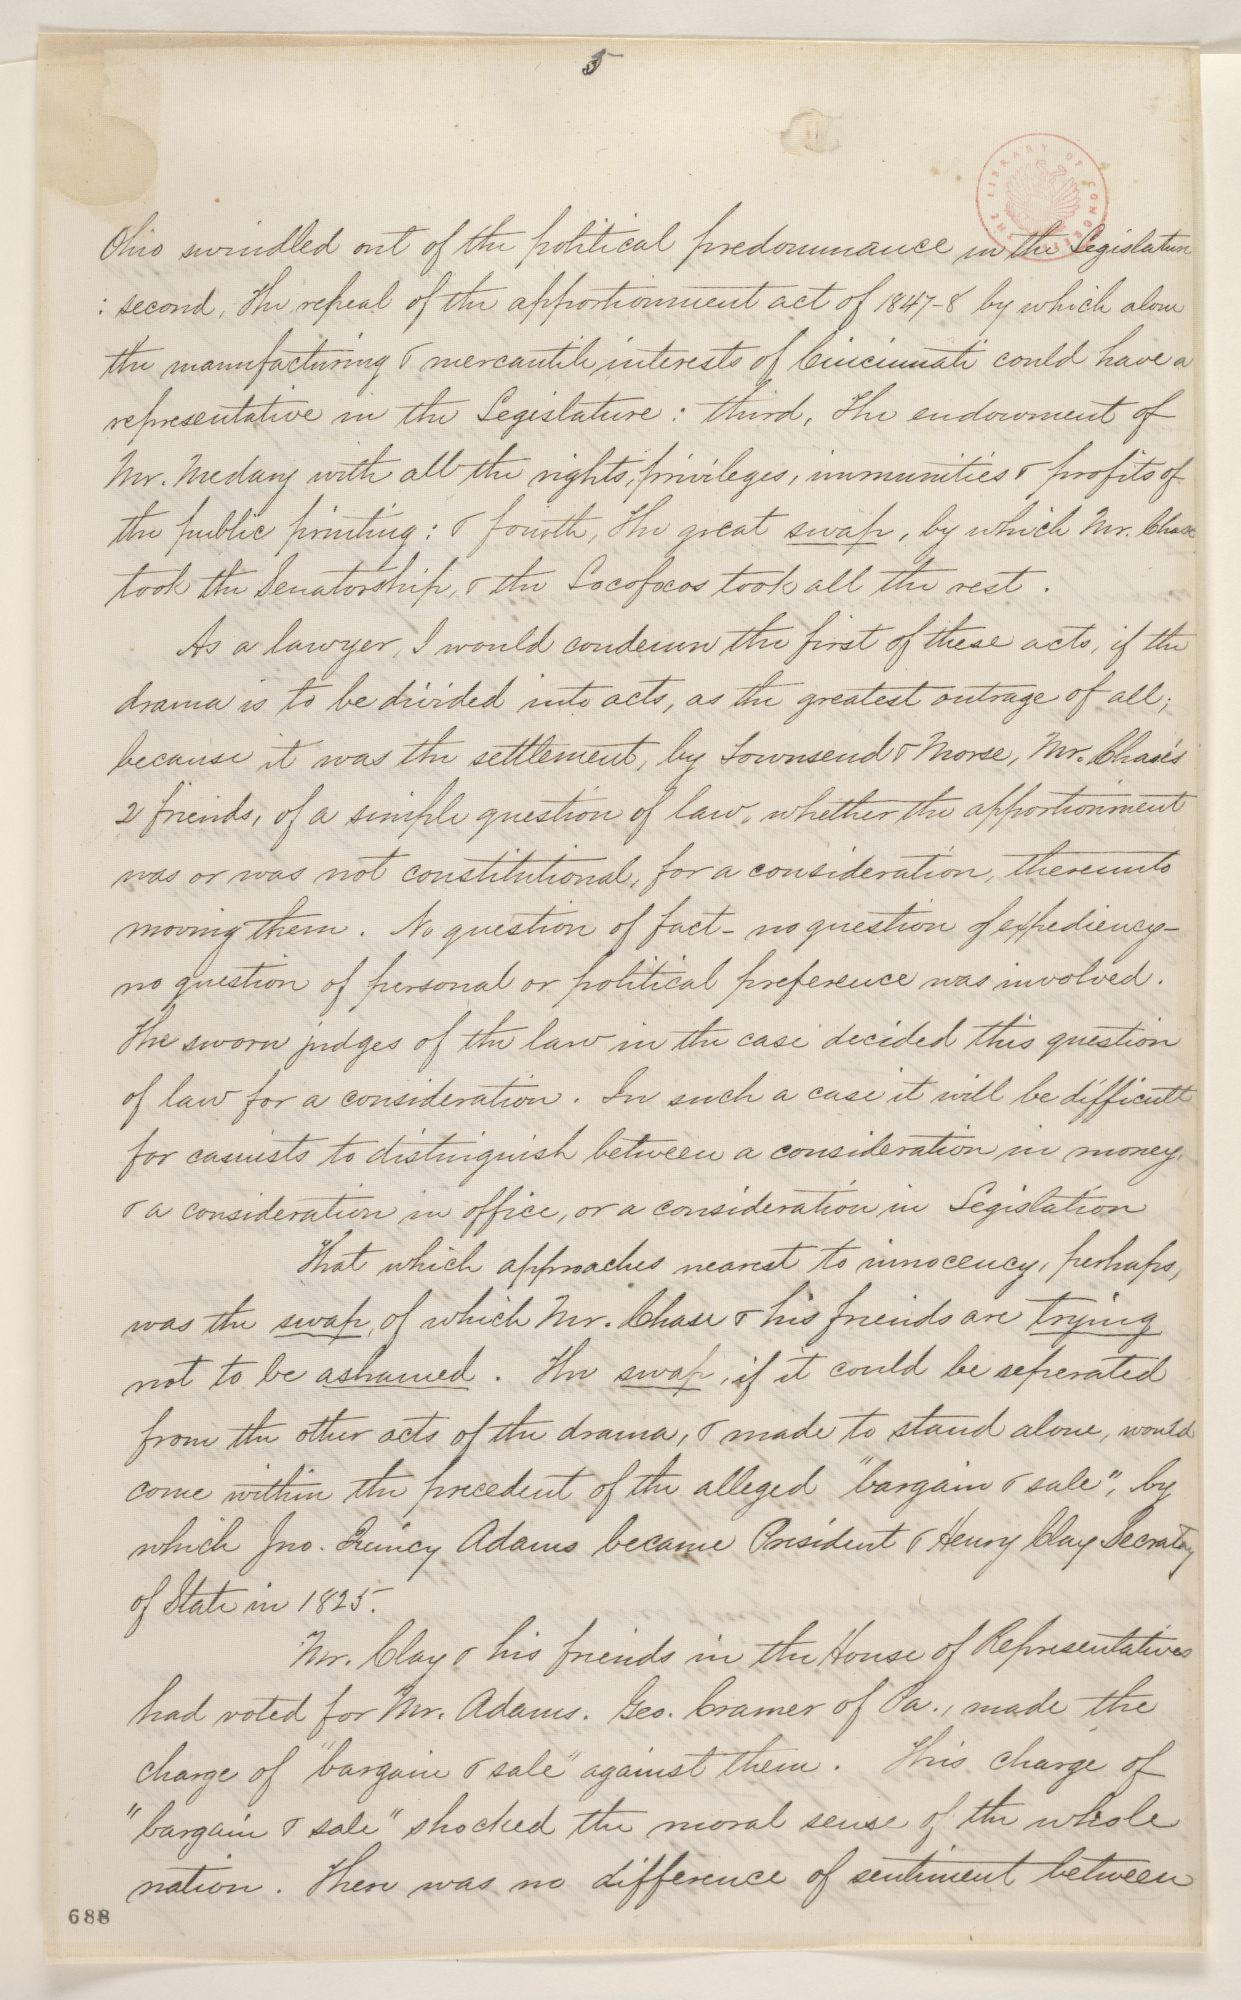 5
THE LIBRARY OF CONGRESS
Ohio swindled out of the political predominance in the Legislature
: second, The repeal of the apportionment act of 1847-8 by which alone
the manufacturing & mercantile interests of Cincinnati could have a
representative in the Legislature: third, The endowment of
Mr. Medary with all the rights, privileges, immunities & profits of
the public printing: & fourth, The great swap, by which Mr. Chase
took the Senatorship, & the Locofocos took all the rest.
As a lawyer, I would condemn the first of these acts, if the
drama is to be divided into acts, as the greatest outrage of all;
because it was the settlement, by Townsend & Morse, Mr. Chase's
2 friends, of a simple question of law, whether the apportionment
was or was not constitutional, for a consideration, thereunto
moving them. No question of fact - no question of expediency -
no question of personal or political preference was involved.
The sworn judges of the law in the case decided this question
of law for a consideration. In such a case it will be difficult
for casuists to distinguish between a consideration in money,
& a consideration in office, or a consideration in Legislation
That which approaches nearest to innocency, perhaps,
was the swap, of which Mr. Chase & his friends are trying
not to be ashamed. The swap, if it could be seperated
from the other acts of the drama, & made to stand alone, would
come within the precedent of the alleged "bargain & sale", by
which Jno. Quincy Adams became President & Henry Clay Secratay
of State in 1825.
Mr. Clay & his friends in the House of Representatives
had voted for Mr. Adams. Geo. Cramer of Pa., made the
charge of "bargain & sale" against them. This charge of
"bargain & sale" shocked the moral sense of the whole
nation. There was no difference of sentiment between
688